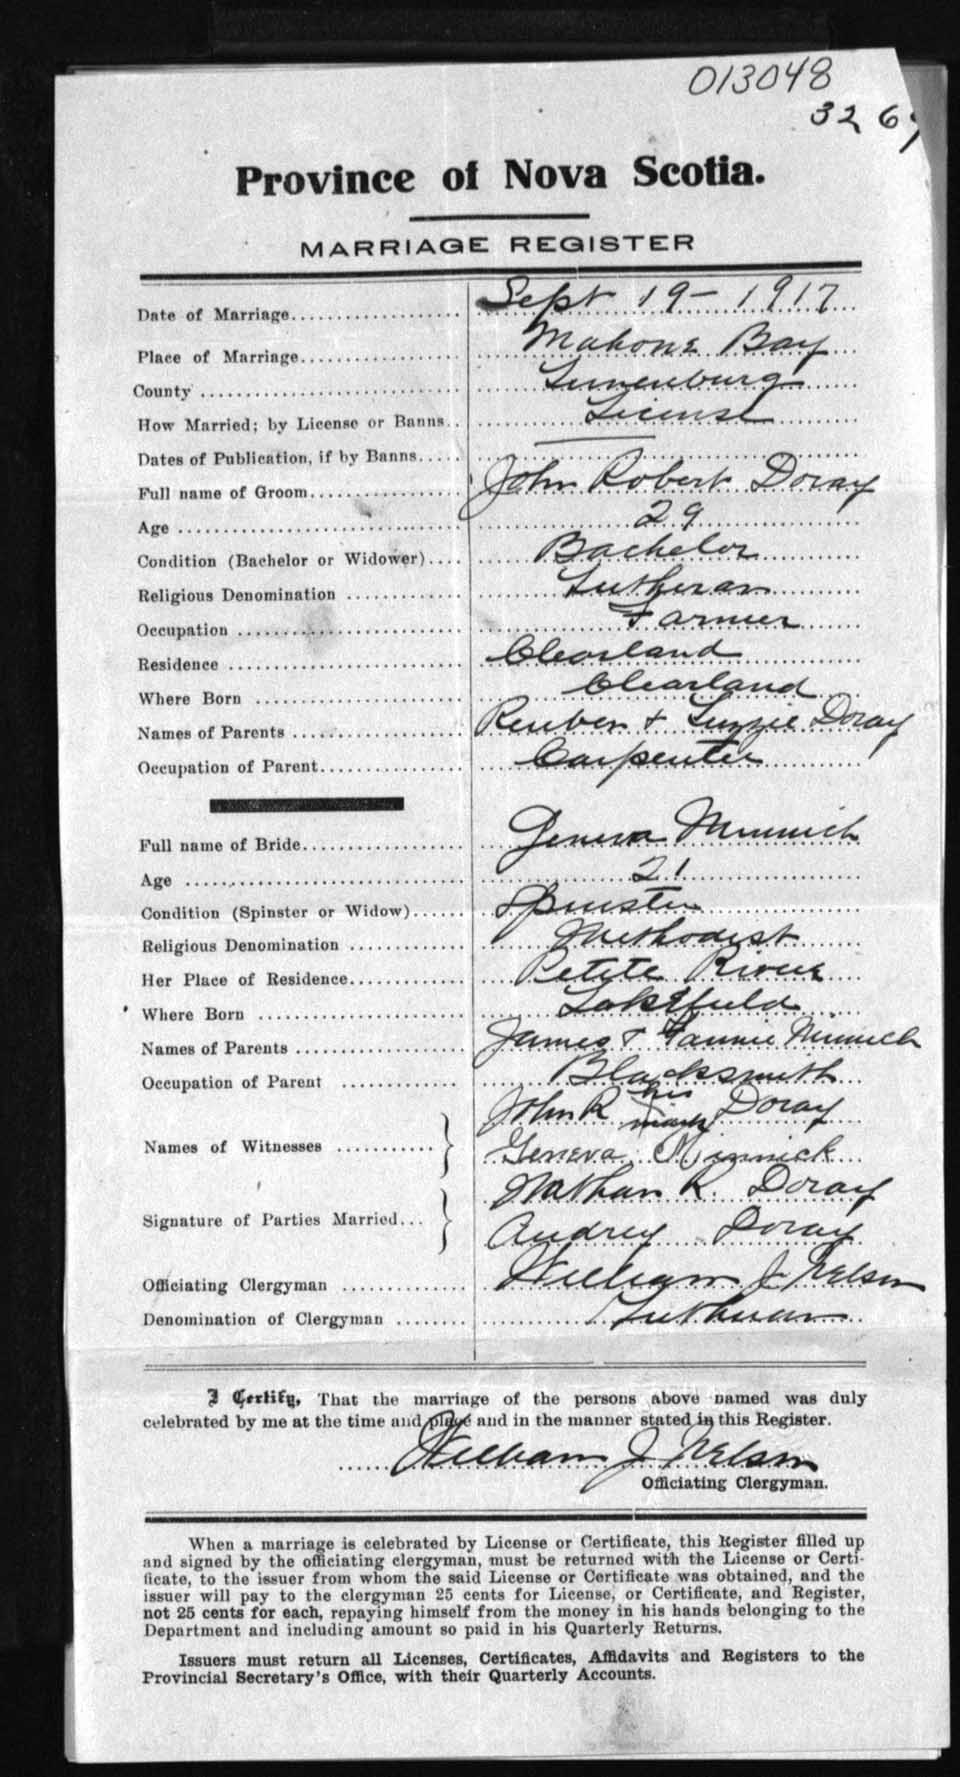 013048
3267
Province of Nova Scotia.
MARRIAGE REGISTER
Date of Marriage.................. Sept 19 - 1917
Place of Marriage................. Mahone Bay
County ........................... Lunenburg
How Married; by License or Banns.. License
Dates of Publication, if by Banns..... ——
Full name of Groom................ John Robert Doray
Age .............................. 29
Condition (Bachelor or Widower).... Bachelor
Religious Denomination ............ Lutheran
Occupation ....................... Farmer
Residence ........................ Clearland
Where Born ....................... Clearland
Names of Parents ................. Reuben + Luzzie Doray
Occupation of Parent.............. Carpenter
Full name of Bride................ Geneva Minnich
Age .............................. 21
Condition (Spinster or Widow)...... Spinster
Religious Denomination ............ Methodist
Her Place of Residence............ Petite Riviere
Where Born ....................... Lakefield
Names of Parents ................. James + Fannie Minnich
Occupation of Parent ............. Blacksmith
John R his mark Doray
Names of Witnesses ........... Geneva Minnick
Nathan R. Doray
Signature of Parties Married... Audrey Doray
Officiating Clergyman ............ William J Nelson
Denomination of Clergyman ........ Lutheran
I Certify, That the marriage of the persons above named was duly
celebrated by me at the time and place and in the manner stated in this Register.
...... William J Nelson
Officiating Clergyman.
When a marriage is celebrated by License or Certificate, this Register filled up
and signed by the officiating clergyman, must be returned with the License or Certi-
ficate, to the issuer from whom the said License or Certificate was obtained, and the
issuer will pay to the clergyman 25 cents for License, or Certificate, and Register,
not 25 cents for each, repaying himself from the money in his hands belonging to the
Department and including amount so paid in his Quarterly Returns.
Issuers must return all Licenses, Certificates, Affidavits and Registers to the
Provincial Secretary's Office, with their Quarterly Accounts.